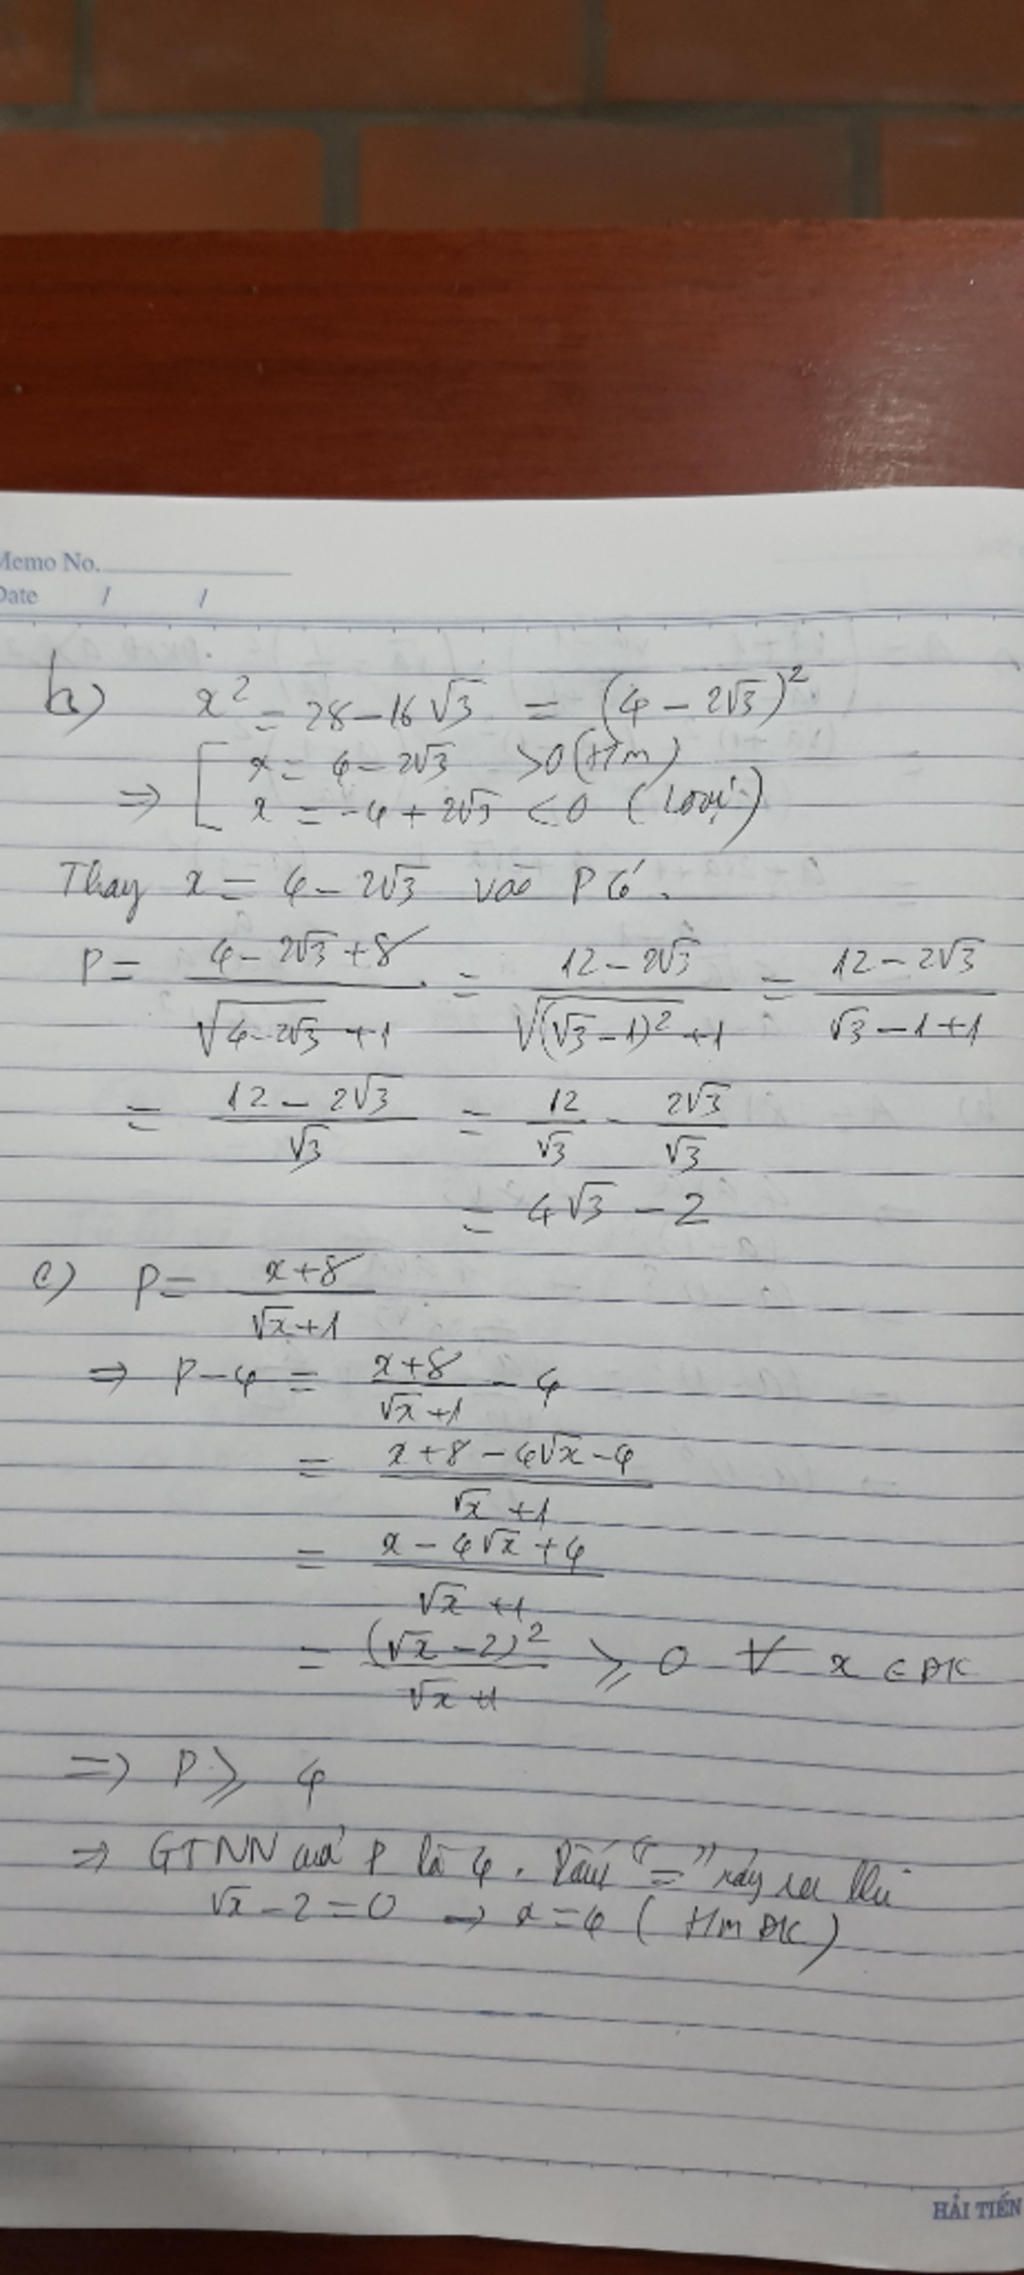 Memo No.
Date / /
b) x² = 28 - 16√3 = (4 - 2√3)²
⇒ [ x = 4 - 2√3 > 0 (t/m)
x = -4 + 2√3 < 0 (Loại)
Thay x = 4 - 2√3 vào P có.
P = (4 - 2√3 + 8)/(√(4 - 2√3) + 1) = (12 - 2√3)/(√((√3 - 1)²) + 1) = (12 - 2√3)/(√3 - 1 + 1)
= (12 - 2√3)/√3 = 12/√3 - 2√3/√3
= 4√3 - 2
c) P = (x + 8)/(√x + 1)
⇒ P - 4 = (x + 8)/(√x + 1) - 4
= (x + 8 - 4√x - 4)/(√x + 1)
= (x - 4√x + 4)/(√x + 1)
= (√x - 2)²/(√x + 1) ⩾ 0 ∀ x ∈ ĐK
⇒ P ⩾ 4
⇒ GTNN của P là 4. Dấu "=" xảy ra khi
√x - 2 = 0 → x = 4 (t/m ĐK)
HẢI TIẾN